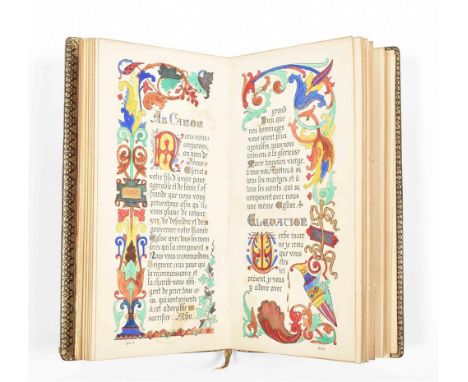 Au Canon
Nous vous
conjurons,
au nom de
Jésus
Christ
votre fils d'avoir pour
agréable et de bénir l'of
frande que nous vous
présentons afin qu'il
vous plaise de conser
ver, de défendre et de
gouverner votre Sainte
Eglise avec tous les mem
qui la composent
Nous vous recommandons
Seigneur, ceux pour qui
la reconnaissance et
la charité nous obli
gent de prier, tous
ceux qui sont présents
à cet adorable
sacrifice
grand
Dieu, que
nos hommages
vous soient plus
agréables, nous nous
unissons à la glorieuse
Marie toujours vierge,
à tous vos Apôtres, à
tous les martyrs, et à
tous les saints qui
composent avec nous
une même Eglise.
Elévation
Verbe incar
né je crois
que vous
êtes
ici
présent, je vous
adore avec